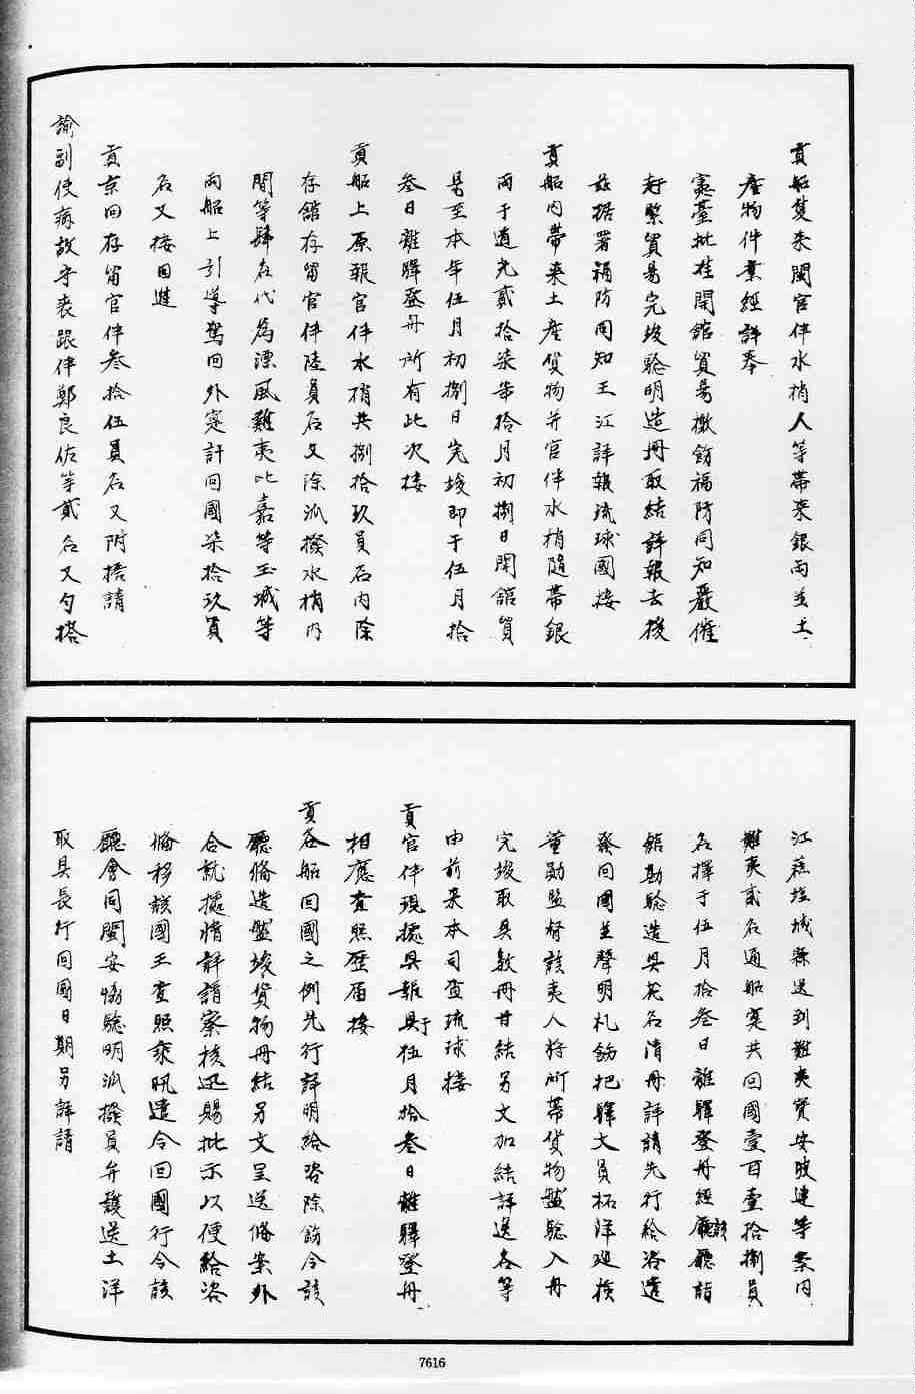 貢船隻來閩官伴水梢人等帶來銀兩並土
產物件業經詳奉
憲臺批准開館貿易檄飭福防同知嚴催
趕緊貿易完竣驗明造冊取結詳報去後
茲據署福防同知王江詳報琉球國接
貢船內帶來土產貨物并官伴水梢隨帶銀
兩于道光貳拾柒年拾月初捌日開舘貿
易至本年伍月初捌日完竣即于伍月拾
叁日離驛登舟所有此次接
貢船上原報官伴水梢共捌拾玖員名內除
存館存留官伴陸員名又除派撥水梢內
間等肆名代為漂風難夷比嘉等玉城等
兩船上引導駕回外寔計回國柒拾玖員
名又接回進
貢京回存留官伴叁拾伍員名又附搭請
諭副使病故守喪跟伴鄭良佐等貳名又勻搭
江蘇塩城縣送到難夷寶安陂連等案內
難夷貳名通船寔共回國壹百壹拾捌員
名擇于伍月拾叁日離驛登舟經該廳廳詣
舘勘驗造具花名清冊詳請先行給咨遣
發回國並聲明札飭把驛大員柘洋巡檢
董勛監督該夷人將所帶貨物盤驗入舟
完竣取具數冊甘結另文加結詳送各等
由前來本司查琉球接
貢官伴現據具報具于伍月拾叁日離驛登舟
相應查照歷屆接
貢各船回國之例先行詳明給咨除飭令該
廳俻造盤竣貨物冊結另文呈送俻案外
合就據情詳請察核迅賜批示以便給咨
俻移該國王查照乘汛遣令回國行令該
廳會同閩安協驗明派撥員弁護送土洋
取具長行回國日期另詳請
7616